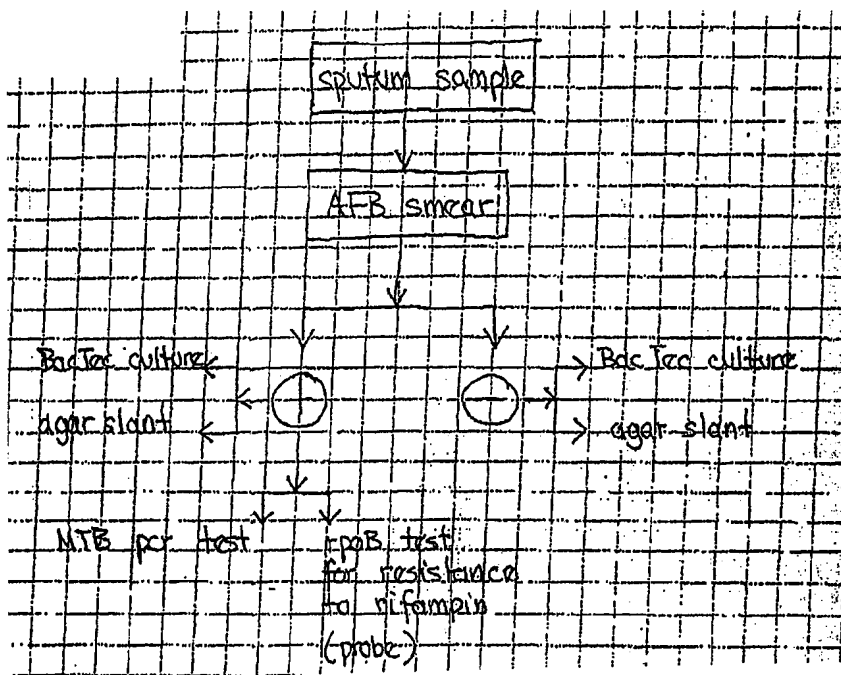 sputum sample
AFB smear
BacTec culture
BacTec culture
+
-
agar slant
agar slant
MTB pcr test
rpoB test
for resistance
to rifampin
(probe)